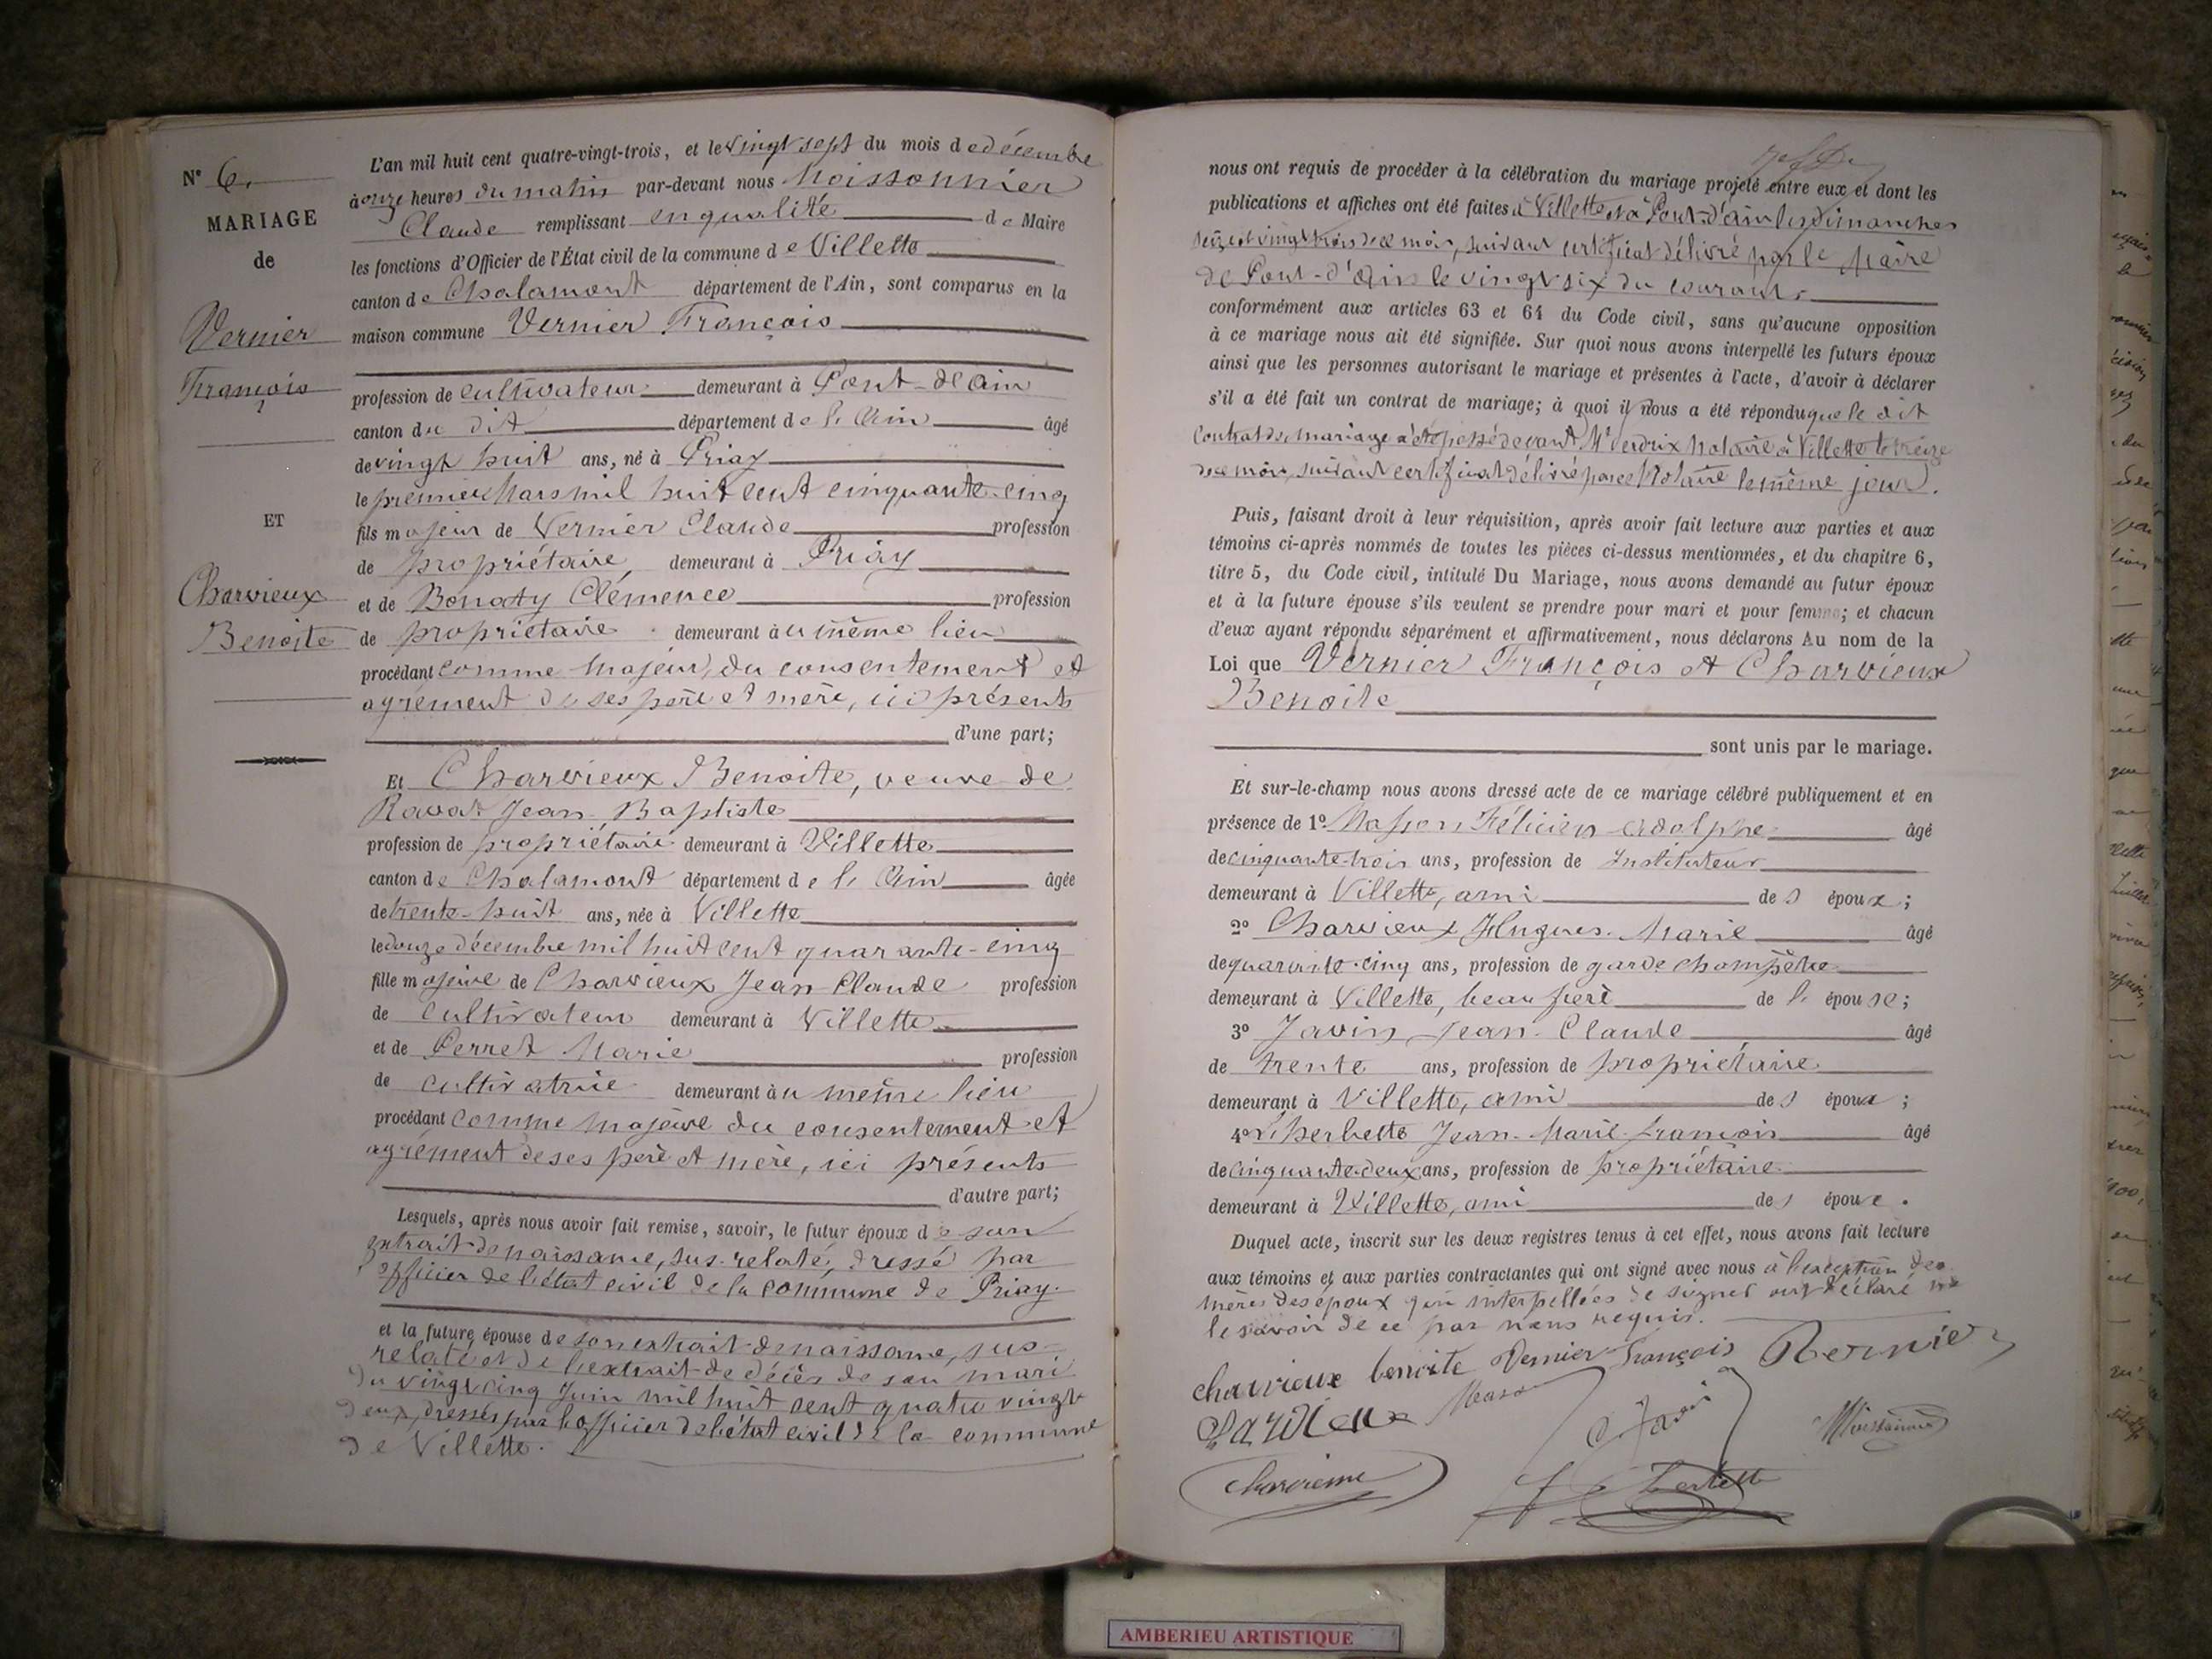 N° 6.
MARIAGE
de
Vernier
François
ET
Charvieux
Benoite
L'an mil huit cent quatre-vingt-trois, et le vingt sept du mois de décembre
à onze heures du matin par-devant nous Moissonnier
Claude remplissant en qualité de Maire
les fonctions d'Officier de l'État civil de la commune de Villette
canton de Chalamont département de l'Ain, sont comparus en la
maison commune Vernier François
profession de cultivateur demeurant à Pont-d'Ain
canton du dit département de l'Ain âgé
de vingt huit ans, né à Priay
le premier Mars mil huit cent cinquante-cinq
fils majeur de Vernier Claude profession
de propriétaire demeurant à Priay
et de Clémence profession
de propriétaire demeurant au même lieu
procédant comme majeur, du consentement et
agrément de ses père et mère, ici présents
d'une part;
Et Charvieux Benoite, veuve de
Ravat Jean-Baptiste
profession de propriétaire demeurant à Villette
canton de Chalamont département de l'Ain âgée
de trente-huit ans, née à Villette
le douze décembre mil huit cent quarante-cinq
fille majeure de Charvieux Jean-Claude profession
de cultivateur demeurant à Villette
et de Perret Marie profession
de cultivatrice demeurant au même lieu
procédant comme majeure du consentement et
agrément de ses père et mère, ici présents
d'autre part;
Lesquels, après nous avoir fait remise, savoir, le futur époux de son
extrait de naissance, sus-relaté, dressé par
officier de l'état civil de la commune de Priay.
et la future épouse de son extrait de naissance, sus-
relaté et de l'extrait de décès de son mari
du vingt cinq Juin mil huit cent quatre vingt
deux, dressés par l'officier de l'état civil de la commune
de Villette.
nous ont requis de procéder à la célébration du mariage projeté entre eux et dont les
publications et affiches ont été faites à Villette et à Pont-d'Ain les dimanches
seize et vingt trois de ce mois, suivant certificat délivré par le Maire
de Pont-d'Ain le vingt six du courant.
conformément aux articles 63 et 64 du Code civil, sans qu'aucune opposition
à ce mariage nous ait été signifiée. Sur quoi nous avons interpellé les futurs époux
ainsi que les personnes autorisant le mariage et présentes à l'acte, d'avoir à déclarer
s'il a été fait un contrat de mariage; à quoi il nous a été répondu que le dit
contrat de mariage a été passé devant Me notaire à Villette le treize
de ce mois, suivant certificat délivré par ce Notaire le même jour.
Puis, faisant droit à leur réquisition, après avoir fait lecture aux parties et aux
témoins ci-après nommés de toutes les pièces ci-dessus mentionnées, et du chapitre 6,
titre 5, du Code civil, intitulé Du Mariage, nous avons demandé au futur époux
et à la future épouse s'ils veulent se prendre pour mari et pour femme; et chacun
d'eux ayant répondu séparément et affirmativement, nous déclarons Au nom de la
Loi que Vernier François et Charvieux
Benoite
sont unis par le mariage.
Et sur-le-champ nous avons dressé acte de ce mariage célébré publiquement et en
présence de 1° Masson Félicien Adolphe âgé
de cinquante-trois ans, profession de Instituteur
demeurant à Villette, ami des époux;
2° Charvieux Hugues-Marie âgé
de quarante-cinq ans, profession de garde champêtre
demeurant à Villette, beau frère de l'épouse;
3° Javin Jean-Claude âgé
de trente ans, profession de propriétaire
demeurant à Villette, ami des époux;
4° Lherbette Jean-Marie-François âgé
de cinquante-deux ans, profession de propriétaire
demeurant à Villette, ami des époux.
Duquel acte, inscrit sur les deux registres tenus à cet effet, nous avons fait lecture
aux témoins et aux parties contractantes qui ont signé avec nous à l'exception des
mères des époux qui interpellées de signer ont déclaré ne
le savoir de ce par nous requis.
charvieux benoite Vernier François Vernier
Masson
Javin
charvieux
Lherbette
AMBERIEU ARTISTIQUE